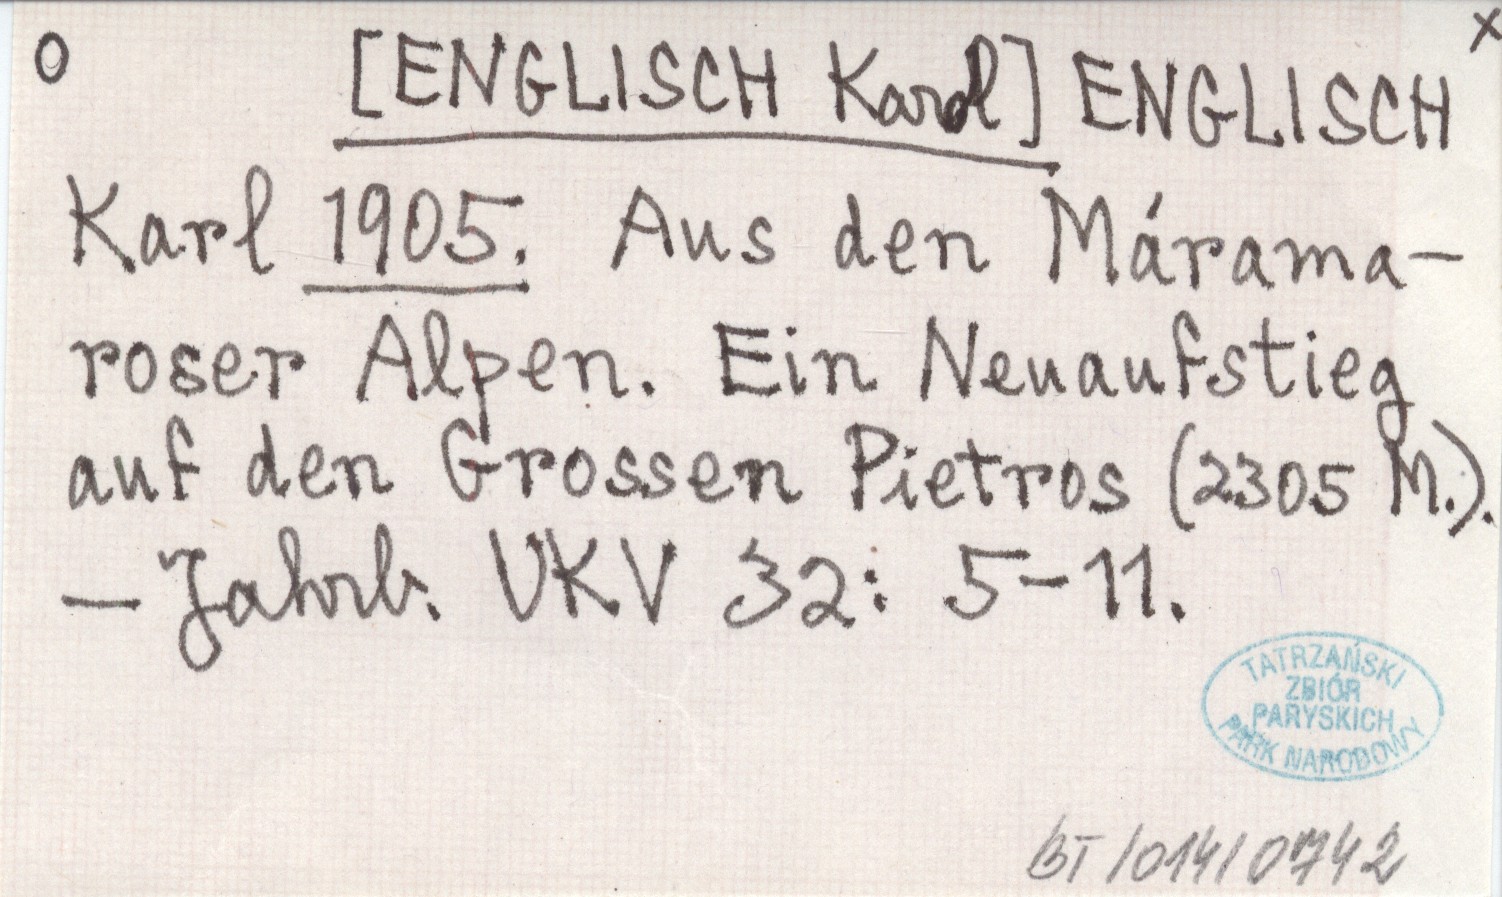 O [ENGLISCH Karol] ENGLISCH x
Karl 1905. Aus den Márama-
roser Alpen. Ein Neuaufstieg
auf den Grossen Pietros (2305 M.).
— Jahrb. UKV 32: 5-11.
TATRZAŃSKI
ZBIÓR
PARYSKICH
PARK NARODOWY
BT/014/0742